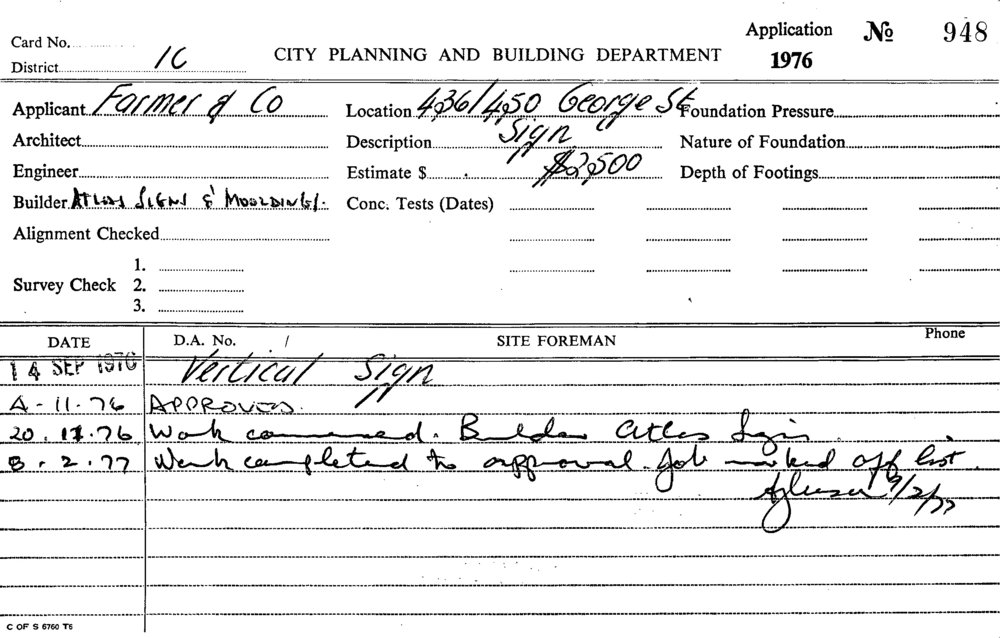 Application № 948
Card No.
District 1C CITY PLANNING AND BUILDING DEPARTMENT 1976
Applicant Farmer & Co Location 436/450 George St Foundation Pressure
Architect Description Sign Nature of Foundation
Engineer Estimate $ $2,500 Depth of Footings
Builder ATLAS SIGNS & MOULDINGS. Conc. Tests (Dates)
Alignment Checked
1.
Survey Check 2.
3.
DATE D.A. No. / SITE FOREMAN Phone
14 SEP 1976 Vertical Sign
4-11-76 APPROVED.
20.11.76 Work commenced. Builder Atlas Signs.
8.2.77 Work completed to approval. Job marked off list.
9/2/77
C OF S 6760 T6